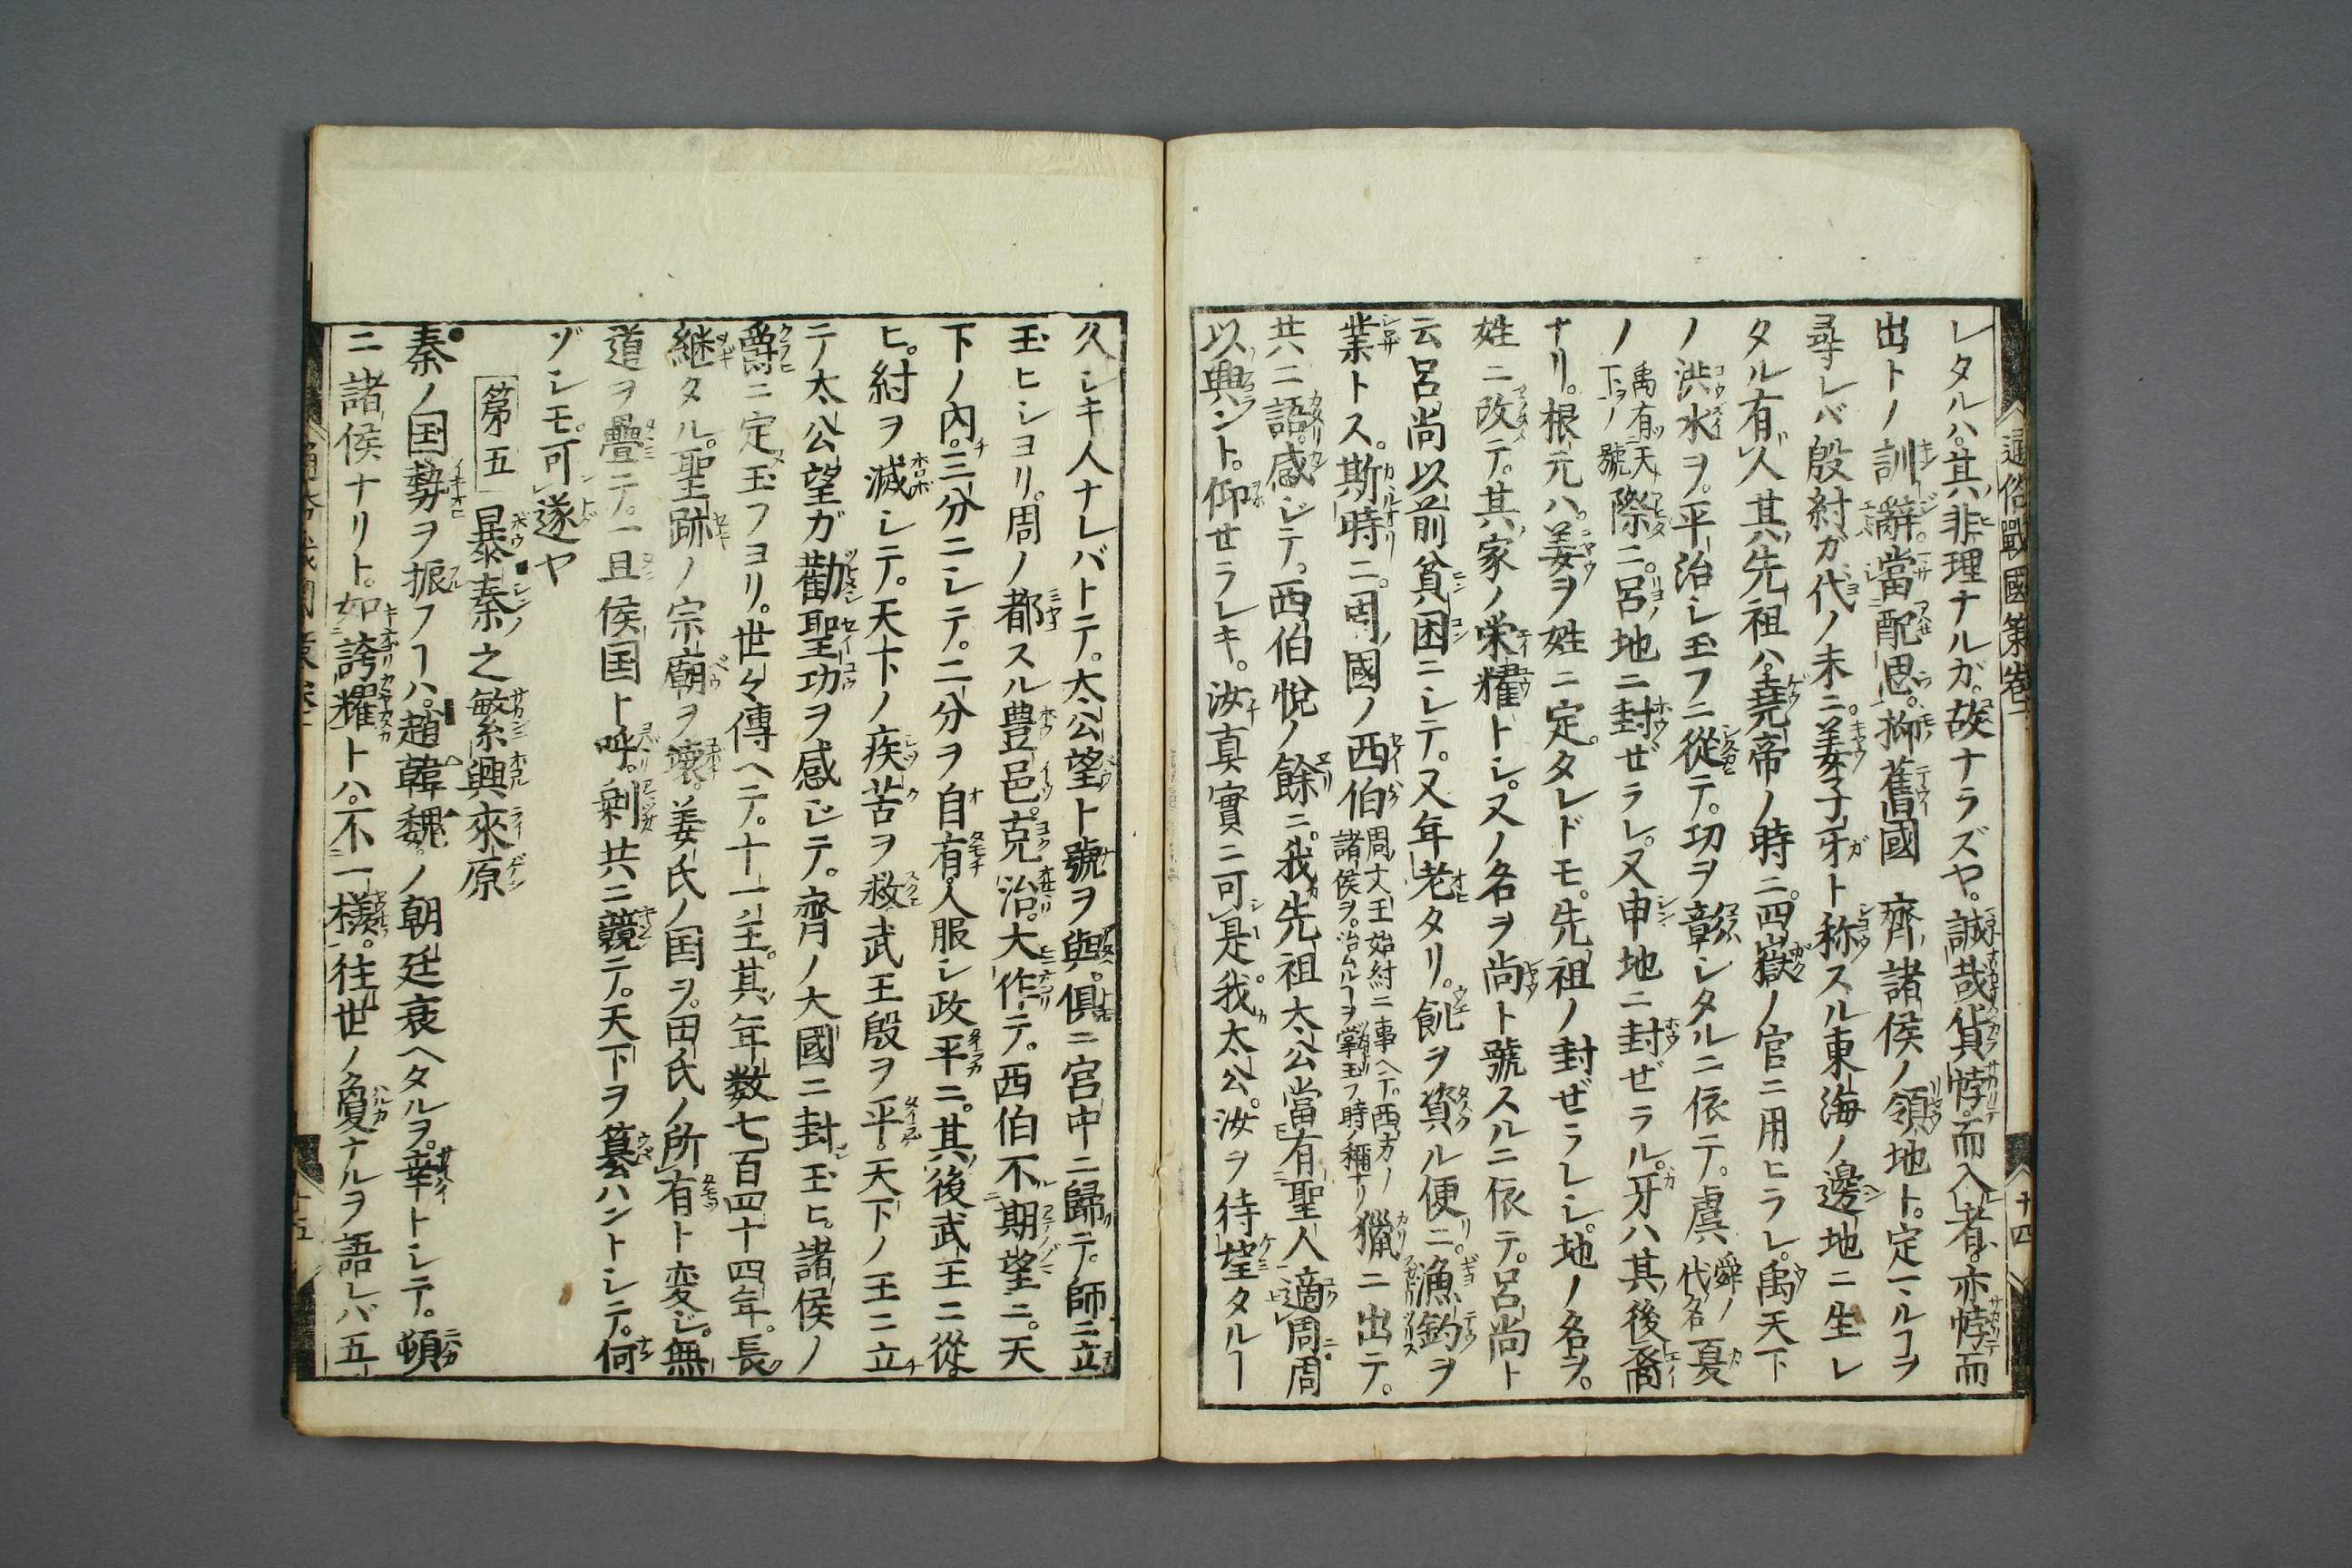 通俗戰國策卷二
十四
レタルハ。其非理ナルガ。故ナラズヤ。誠哉貨悖而入者。亦悖而
出トノ訓辭。當配思。抑舊國 齊諸侯ノ領地ト。定マルヿヲ
尋レバ殷紂ガ代ノ末ニ。姜子牙ト称スル東海ノ邊地ニ生レ
タル有人其先祖ハ堯帝ノ時ニ。四嶽ノ官ニ用ヒラレ。禹天下
ノ洪水ヲ。平治シ玉フニ從テ。功ヲ彰シタルニ依テ。虞舜ノ代名夏
ノ禹有天下ノ號際ニ。呂ノ地ニ封ゼラレ。又申地ニ封ゼラル。牙ハ其後裔
ナリ。根元ハ。姜ヲ姓ニ定タレドモ。先祖ノ封ゼラレシ。地ノ名ヲ。
姓ニ改テ。其家ノ栄耀トシ。又ノ名ヲ尚ト號スルニ依テ。呂尚ト
云呂尚以前貧困ニシテ。又年老タリ。飢ヲ資ル便ニ。漁釣ヲ
業トス。斯時ニ。周ノ國ノ西伯周丈王始紂ニ事ヘテ。西方ノ諸侯ヲ。治ムルヿヲ掌玉フ時ノ稱ナリ獵ニ出テ。
共ニ語。感ジテ。西伯悦ノ餘ニ。我先祖太公當有聖人適周周
以興ント。仰セラレキ。汝真實ニ可是。我太公。汝ヲ待望タルヿ
久シキ人ナレバトテ。太公望ト號ヲ與。俱ニ宮中ニ歸テ。師ニ立
玉ヒショリ。周ノ都スル豊邑。克治。大作テ。西伯不期望ニ。天
下ノ內。三分ニシテ。二分ヲ自有。人服シ政平ニ。其後武王ニ從
ヒ。紂ヲ滅シテ。天下ノ疾苦ヲ救武王殷ヲ平。天下ノ王ニ立
テ太公望ガ勸聖功ヲ感ジテ。齊ノ大國ニ封玉ヒ。諸侯ノ
爵ニ定玉フヨリ。世々傳ヘテ。十一主。其年数七百四十四年。長
継タル。聖跡ノ宗廟ヲ壞。姜氏ノ国ヲ。田氏ノ所有ト変ジ。無
道ヲ疊テ。一旦侯国ト呼。剰共ニ競テ。天下ヲ簒ハントシテ。何
ゾシモ。可遂ヤ
第五 暴秦之敏糸興來原
秦ノ国勢ヲ振フヿハ。趙韓魏ノ朝廷衰ヘタルヲ。幸トシテ。頓
ニ諸侯ナリト。如誇耀トハ。不一樣。往世ノ敻ナルヲ語レバ五
十五